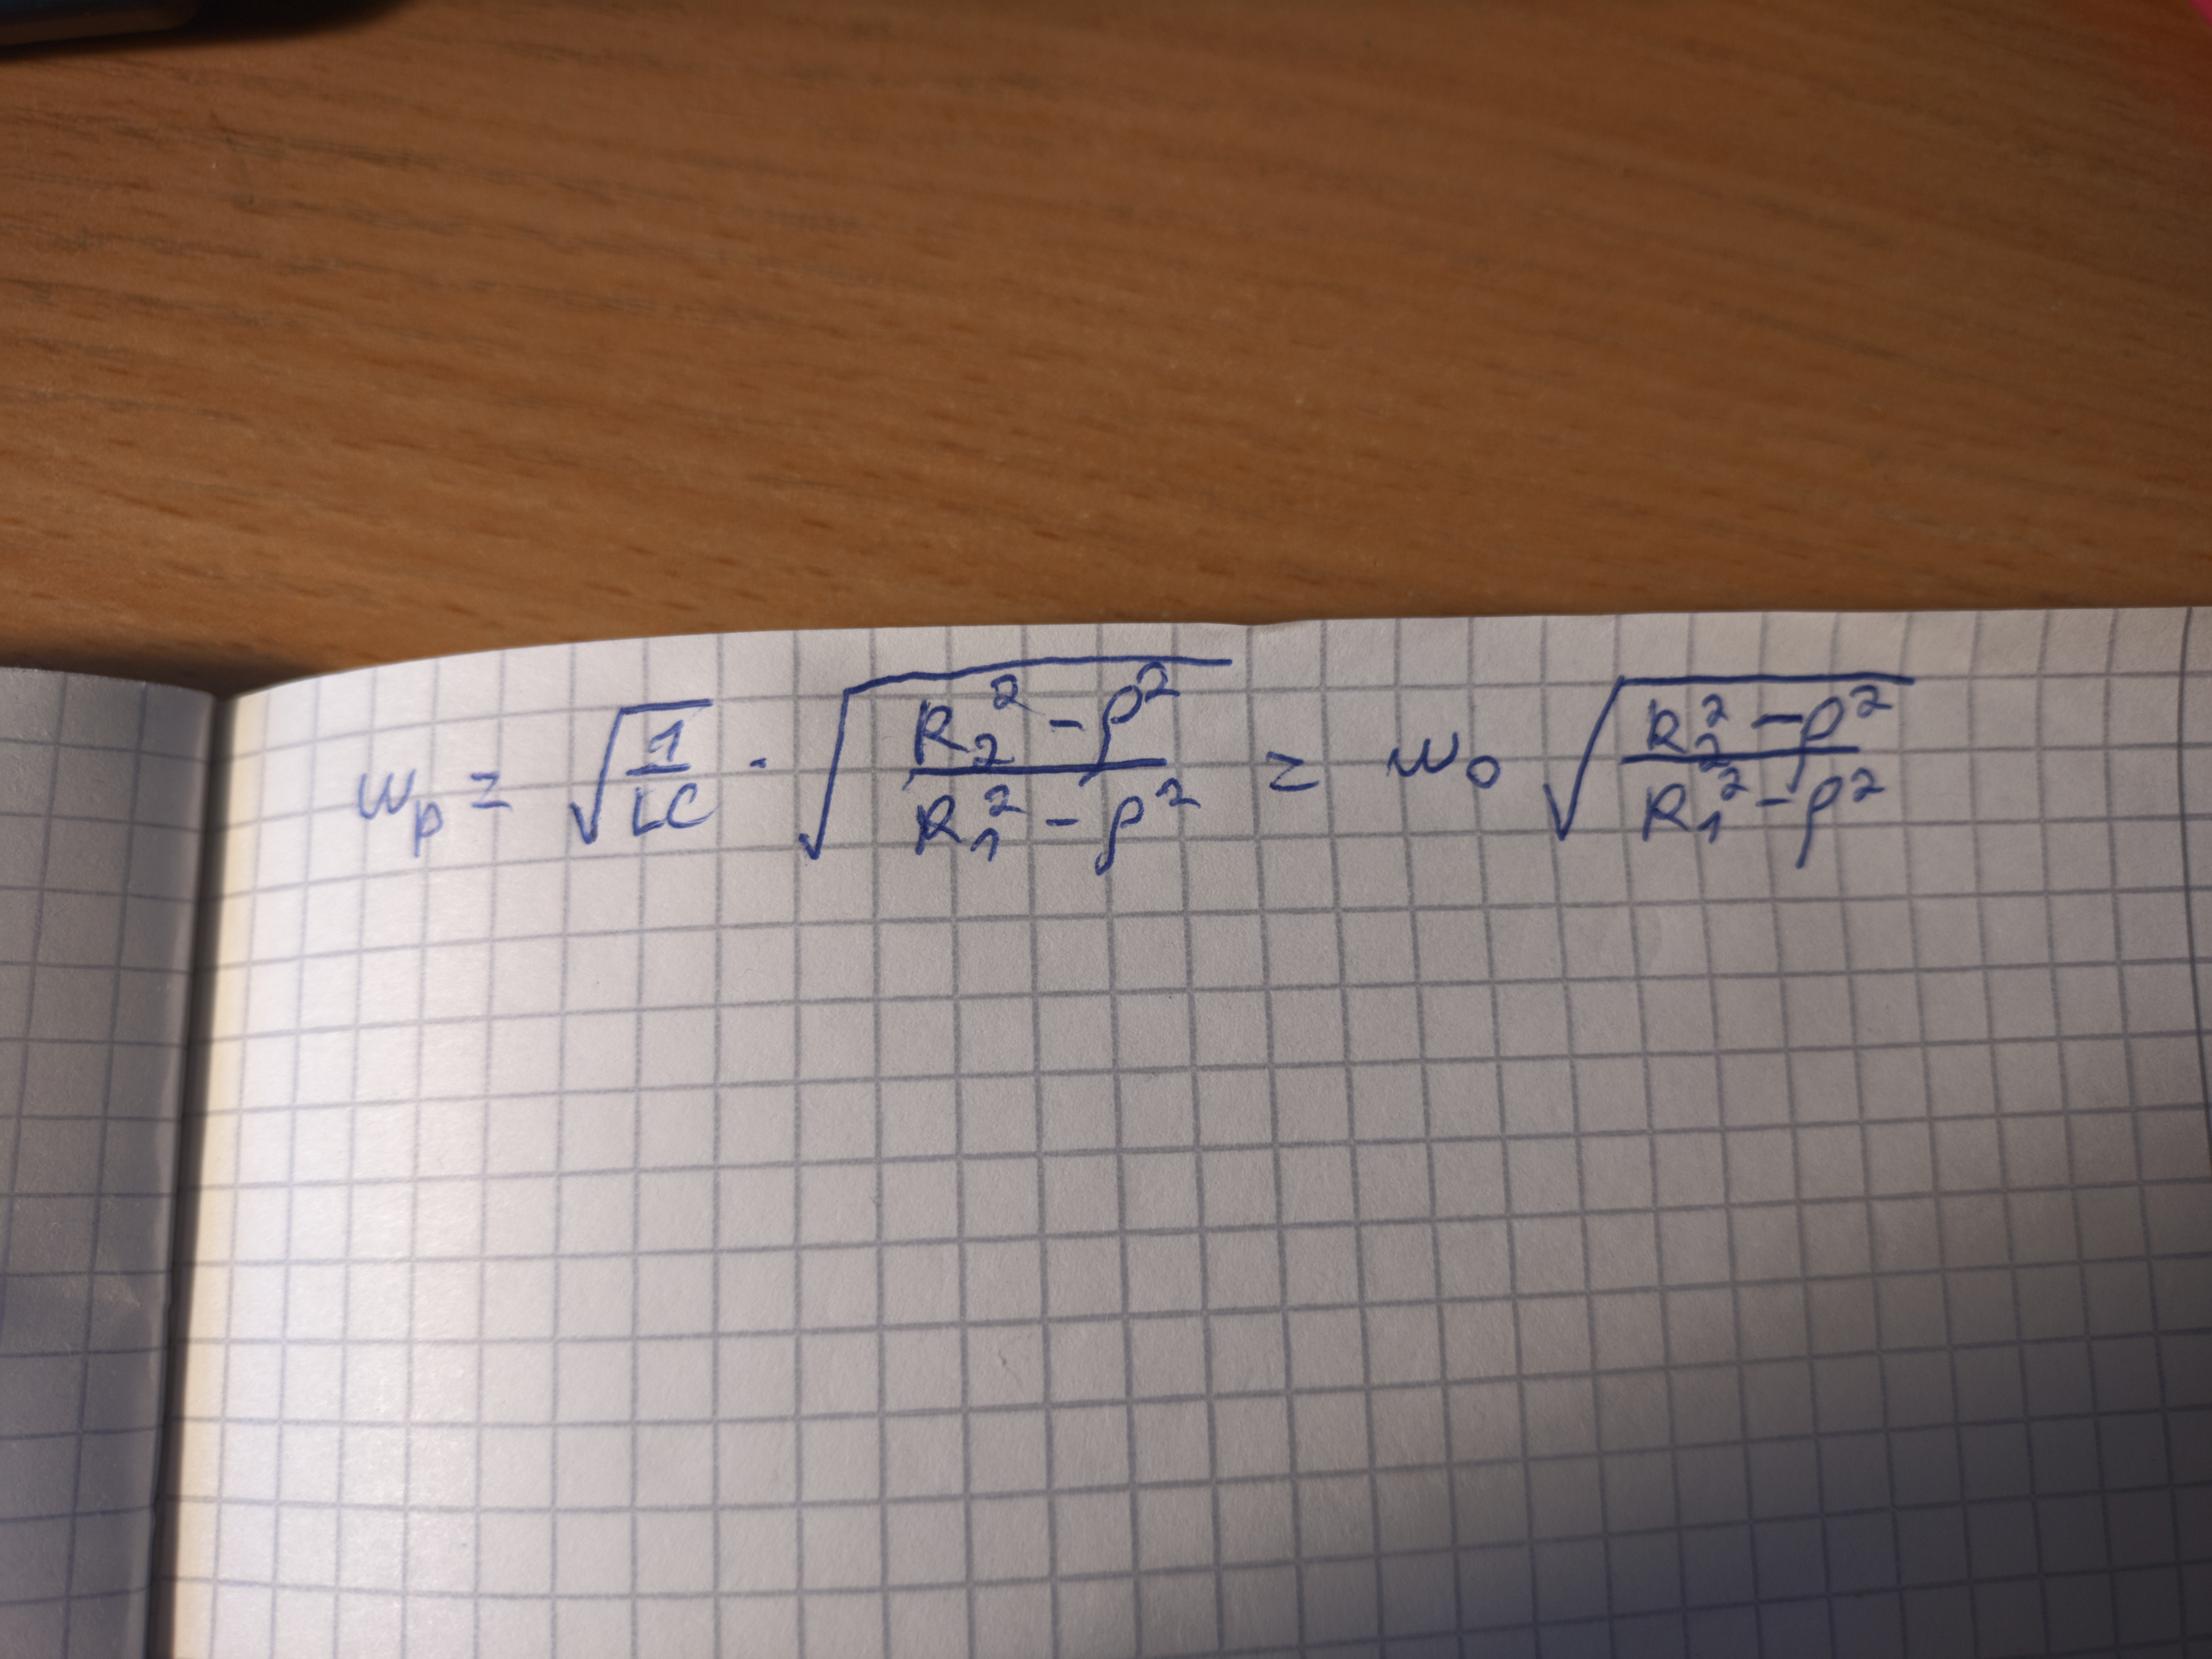 ω_p = √(1/LC) · √((R₂² − ρ²)/(R₁² − ρ²)) = ω₀ √((R₂² − ρ²)/(R₁² − ρ²))